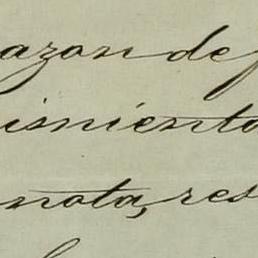 azon de
ismiento
nota, res